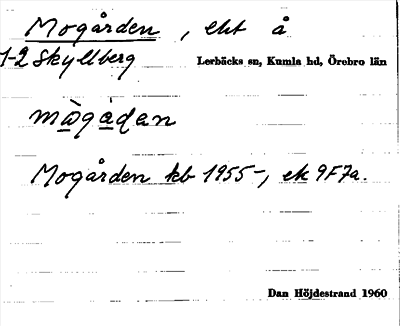 Mogården, eht å
1-2 Skyllberg Lerbäcks sn, Kumla hd, Örebro län
mògádan
Mogården kb 1955-, ek 9F7a.
Dan Höjdestrand 1960